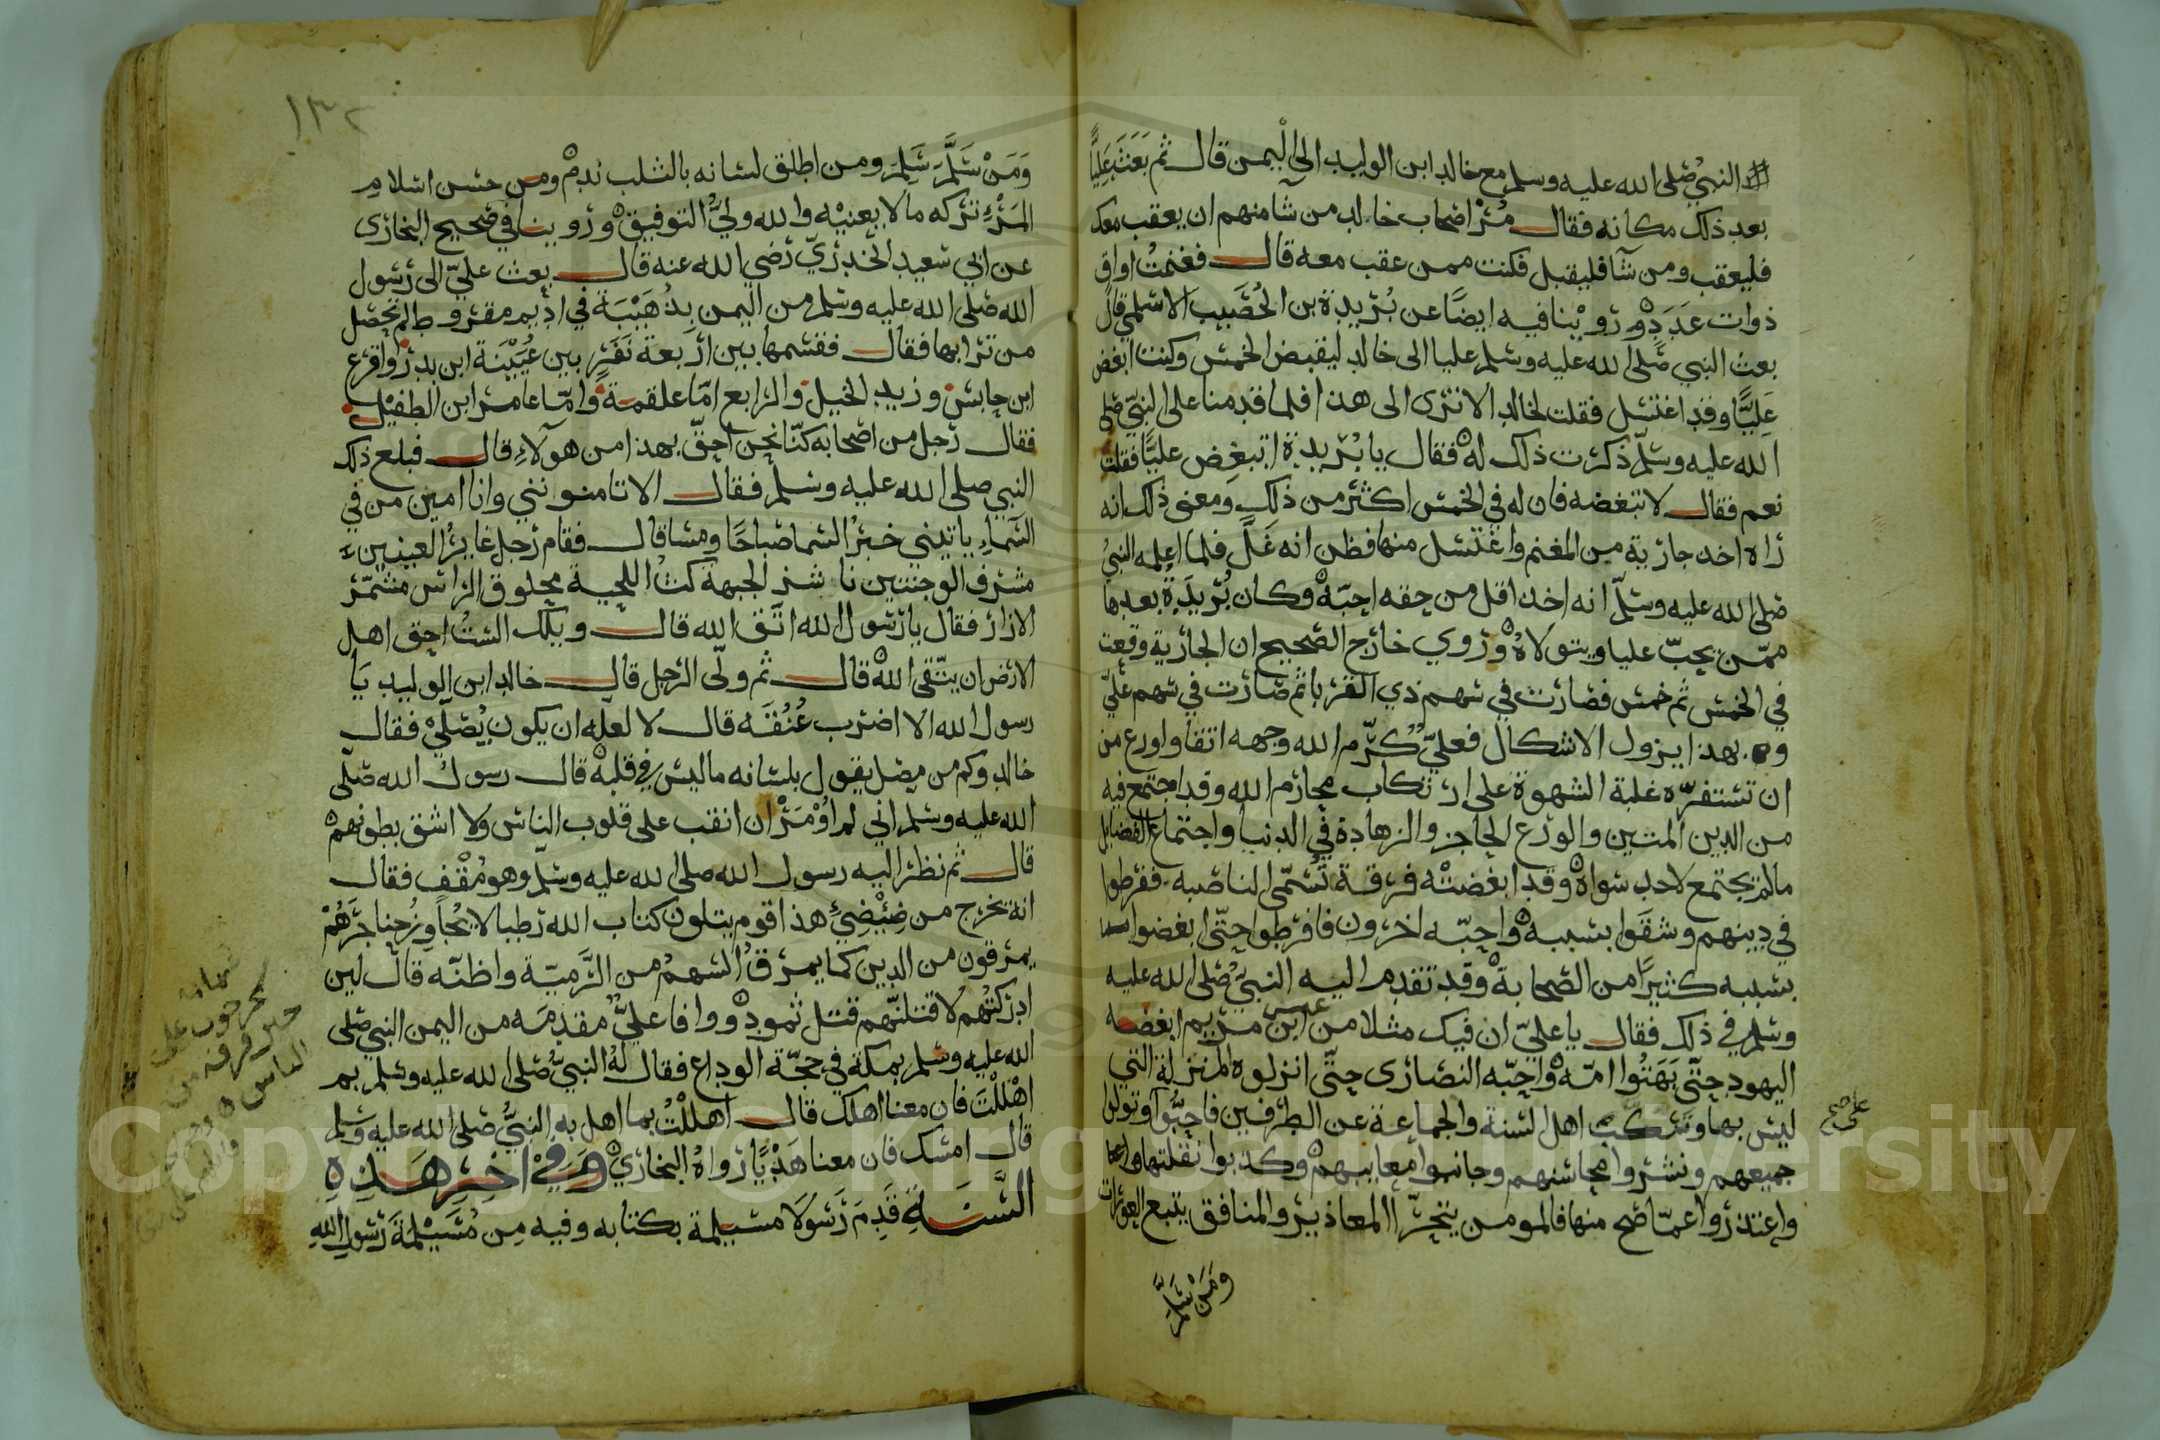 النبي صلى الله عليه وسلم مع خالد ابن الوليد الى اليمن قال ثم بَعَثَ عَلِيًّا
بعد ذلك مكانه فقال مُرْ اصحاب خالد من شآ منهم ان يعقب معك
فليعقب ومن شآ فليقبل فكنت ممن عقب معه قال فغنمتُ اواق
ذوات عَدَدٍ وروينا فيه ايضًا عن بُرَيدة بن الحُصَيب الاسلمي قال
بعث النبي صلى الله عليه وسلم عليا الى خالد ليقبض الخمس وكنت ابغض
عَلِيًّا وقد اغتسل فقلت لخالد الا ترى الى هذا فلما قدمنا على النبيّ صلى
الله عليه وسلّم ذكرت ذلك له فقال يا بُرَيدة اتبغض عليًّا فقلت
نعم فقال لا تبغضه فان له في الخمس اكثر من ذلك ومعنى ذلك انه
راه اخذ جارية من المغنم واغتسل منها فظن انه غَلَّ فلما اعلمه النبيُ
صلى الله عليه وسلّم انه اخذ اقل من حقه احبّه وكان بُرَيدَةُ بعدها
ممّن يحبّ عليا ويتولاهُ وروي خارج الصحيح ان الجارية وقعت
في الخمس ثم خمس فصارت في سهم ذي القربا ثم صارت في سهم عليّ
و بهذا يزول الاشكال فعليّ كرّم الله وجهه اتقا واورع من
ان تستفزّه غلبة الشهوة على ارتكاب محارم الله وقد اجتمع فيه
من الدين المتين والورع الحاجز والزهادة في الدنيا واجتماع الفضايل
مالم يجتمع لاحد سواه وقد ابغضتْه فرقة تُسَمّى الناصبه ففرطوا
في دينهم وشقَوا بسببه واحبّه اخرون فافرطوا حتّى ابغضوا
بسببه كثيرًا من الصحابة وقد تقدم اليه النبيّ صلى الله عليه
وسلم في ذلك فقال يا عليّ ان فيك مثلا من عيسى ابن مريم ابغضه
اليهود حتّى بَهَتُوا امّه واحبّه النصارى حتّى انزلوه المنزلة التي
ليس بها وتَنَكّبَتْ اهل السنة والجماعة عن الطرفين فاحبّوا وتولوا
على صح
جميعهم ونشروا محاسنهم وجانبوا معايبهم وكذبوا نقلتها
واعتذروا عمّا صح منها فالمومن يتحرّا المعاذير والمنافق يتبع العورات
ومَنْ سَلَّمَ
١٣٢
وَمَنْ سَلَّمَ سَلِمَ ومن اطلق لسانه بالثلب ندم ومن حسن اسلام
المَرْءِ تركه ما لا يعنيه والله وليُّ التوفيق وروينا في صحيح البخارى
عن ابي سعيد الخدريّ رضي الله عنه قال بعث عليّ الى رسول
الله صلى الله عليه وسلم من اليمن بِذُهَيْبَة في اديم مقروط لم تحصل
من ترابها فقال فقسمها بين اربعة نَفَرٍ بين عُيَيْنَة ابن بدر واقرع
ابن حابس وزيد الخيل والرابع امّا علقمة وامّا عامر ابن الطفيل
فقال رجل من اصحابه كنّا نحن احقّ بهذا من هولآءِ قال فبلع ذلك
النبي صلى الله عليه وسلم فقال الا تامنونني وانا امين من في
السَماءِ ياتيني خبرُ السما صَباحًا ومسا قال فقام رجل غايرُ العينين
مشرف الوجنتين ناشز الجبهة كث اللحية محلوق الراس مشمّر
الازار فقال يا رسول الله اتّق الله قال ويلك الستُ احق اهل
الارض ان يتّقي الله قال ثم ولّى الرجل قال خالد ابن الوليد يَا
رسول الله الا اضرب عُنُقَه قال لا لعله ان يكون يُصَلّي فقال
خالد وكم من مصل يقول بلسانه ما ليس في قلبه قال رسول الله صلّى
الله عليه وسلم اني لم اُوْمَرْ ان انقب على قلوب النّاس ولا اشق بطونهم
قال ثم نظر اليه رسول الله صلى الله عليه وسلّم وهو مُقْفٍ فقال
انه يخرج من ضِئْضِئِ هذا قوم يتلون كتاب الله رطبا لا يُجَاوِزُ حناجرَهُمْ
يمرقون من الدين كما يمرقُ السهمُ من الرَّميّة واظنّه قال لين
ادركتُهم لاقتلنّهم قتل ثمود ووافا عليٌّ مقدمَه من اليمن النبي صلى
الله عليه وسلم بمكة في حجّة الوداع فقال لهُ النبيُّ صلى الله عليه وسلم بم
اهْلَلْتَ فان معنا اهلك قال اهللتُ بما اهل به النبيُّ صلى الله عليه وسلم
قال امسك فان معنا هَدْيًا رواهُ البخاريّ وَفِيْ اٰخِرِ هَذِهِ
السَّنَةِ قَدِمَ رَسُولَا مسيلمة بكتابه وفيه مِن مُسَيْلِمَةَ رَسُولِ اللهِ
يخرجون على
حين فرقه من
الناس
Copyright © King Saud University